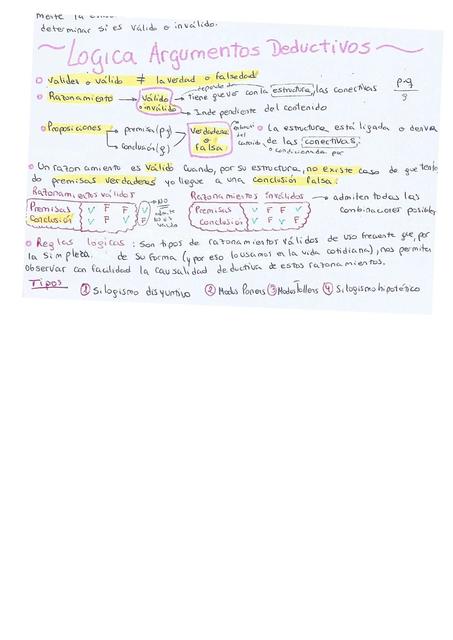 determinar si es válido o inválido.
Logica Argumentos Deductivos
Validez o válido ≠ la verdad o falsedad
Razonamiento → válido o inválido → tiene que ver con la estructura, las conectivas
→ Independiente del contenido
depende de
p→q
q
Proposiciones → premisa (p,q)
→ conclusión (q)
Verdadera o falsa
La estructura está ligada o deriva
de las conectivas.
condicionada por
Un razonamiento es válido cuando, por su estructura, no existe caso de que tenien
do premisas verdaderas yo llegue a una conclusión falsa.
Razonamientos válidos
Premisas V F F V
Conclusión V F V F
NO
Razonamientos inválidos → admiten todas las
combinaciones posibles
Premisas V F F V
Conclusión V F V F
Reglas logicas: Son tipos de razonamientos válidos de uso frecuente que, por
la simpleza de su forma (y por eso lo usamos en la vida cotidiana), nos permite
observar con facilidad la causalidad deductiva de estos razonamientos.
Tipos ① Silogismo disyuntivo ② Modus Ponens ③ Modus Tollens ④ Silogismo hipotético